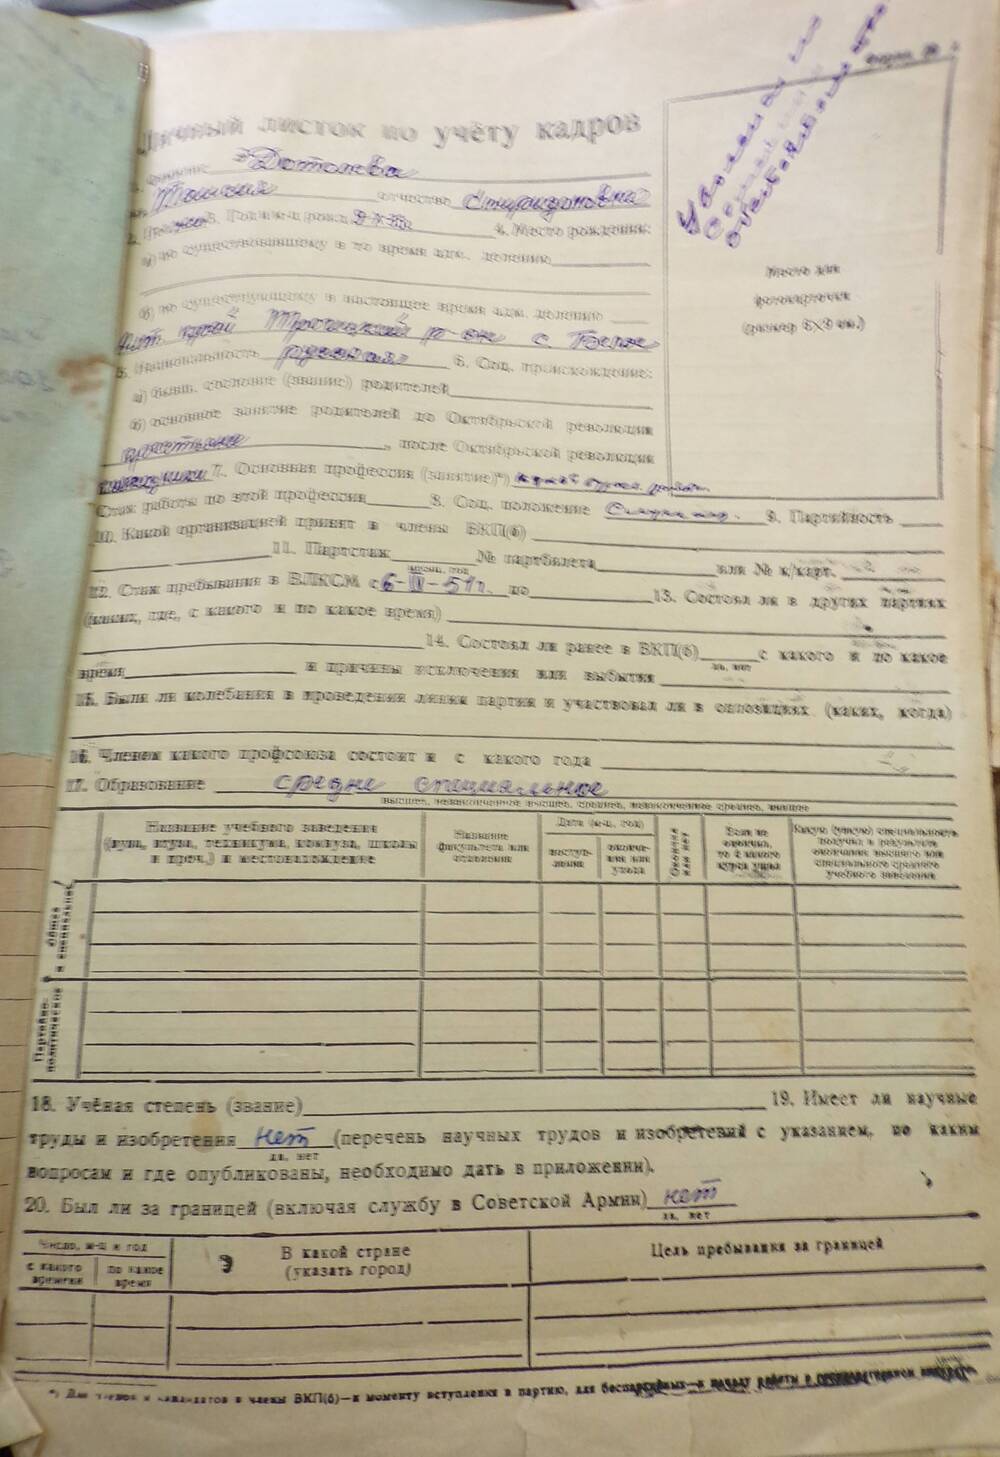 Форма №
Личный листок по учёту кадров
1. Фамилия
имя Таисия отчество Спиридоновна
2. Пол жен 3. Год и м-ц рожд. 4. Место рождения:
а) по существовавшему в то время адм. делению
б) по существующему в настоящее время адм. делению
Алт. край Троицкий р-он с. Белое
5. Национальность русская 6. Соц. происхождение:
а) бывш. сословие (звание) родителей
б) основное занятие родителей до Октябрьской революции
крестьяне, после Октябрьской революции
7. Основная профессия (занятие)*)
Стаж работы по этой профессии 8. Соц. положение 9. Партийность
10. Какой организацией принят в члены ВКП(б)
11. Партстаж № партбилета или № к/карт.
месяц, год
12. Стаж пребывания в ВЛКСМ с 6- -51 г. по 13. Состоял ли в других партиях
(каких, где, с какого и по какое время)
14. Состоял ли ранее в ВКП(б) с какого и по какое
да, нет
время и причины исключения или выбытия
15. Были ли колебания в проведении линии партии и участвовал ли в оппозициях (каких, когда)
16. Членом какого профсоюза состоит и с какого года
17. Образование средне специальное
высшее, незаконченное высшее, среднее, незаконченное среднее, низшее
Название учебного заведения (вуза, втуза, техникума, комвуза, школы и проч.) и местонахождение
Название факультета или отделения
Дата (м-ц, год)
поступления
окончания или ухода
Окончил или нет
Если не окончил, то с какого курса ушел
Какую (узкую) специальность получил в результате окончания высшего или специального среднего учебного заведения
Общее и специальное
Партийно-политическое
18. Учёная степень (звание) 19. Имеет ли научные
труды и изобретения нет (перечень научных трудов и изобретений с указанием, по каким
да, нет
вопросам и где опубликованы, необходимо дать в приложении).
20. Был ли за границей (включая службу в Советской Армии) нет
да, нет
Число, м-ц и год
с какого времени
по какое время
В какой стране (указать город)
Цель пребывания за границей
*) Для членов и кандидатов в члены ВКП(б)—к моменту вступления в партию, для беспартийных—к началу работы в
Место для
фотокарточки
(размер 6×9 см.)